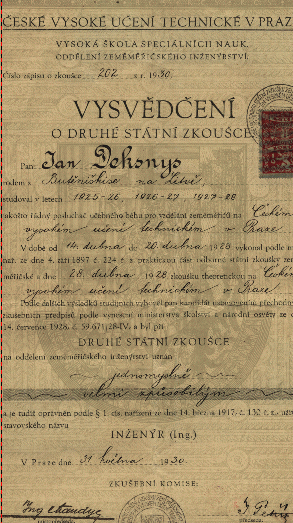 ČESKÉ VYSOKÉ UČENÍ TECHNICKÉ V PRAZ
VYSOKÁ ŠKOLA SPECIÁLNÍCH NAUK,
ODDĚLENÍ ZEMĚMĚŘIČSKÉHO INŽENÝRSTVÍ.
Číslo zápisu o zkoušce 202 z r. 1930.
VYSVĚDČENÍ
O DRUHÉ STÁTNÍ ZKOUŠCE
Pan Jan Deksnys
rodem z na Litvě,
studoval v letech 1925-26, 1926-27, 1927-28
jakožto řádný posluchač učebného běhu pro vzdělání zeměměřičů na Českém
vysokém učení technickém v Praze.
V době od 14. dubna do 20. dubna 1928 vykonal podle n
nař. ze dne 4. září 1897 č. 224 ř. z. praktickou část odborné státní zkoušky ze
měřičské a dne 28. dubna 1928 zkoušku theoretickou na Českém
vysokém učení technickém v Praze
Podle dalších výsledků studijních vyhověl pan kandidát
zkušebních předpisů podle vynesení ministerstva školství a národní osvěty ze d
14. července 1928, č. 59.671/28-IV. a byl při
DRUHÉ STÁTNÍ ZKOUŠCE
na oddělení zeměměřičského inženýrství uznán
jednomyslně
velmi způsobilým
a je tudíž oprávněn podle § 1. cís. nařízení ze dne 14. března 1917, č. 130 ř. z., uží
stavovského názvu
INŽENÝR (Ing.)
V Praze dne 31. května 1930.
ZKUŠEBNÍ KOMISE: